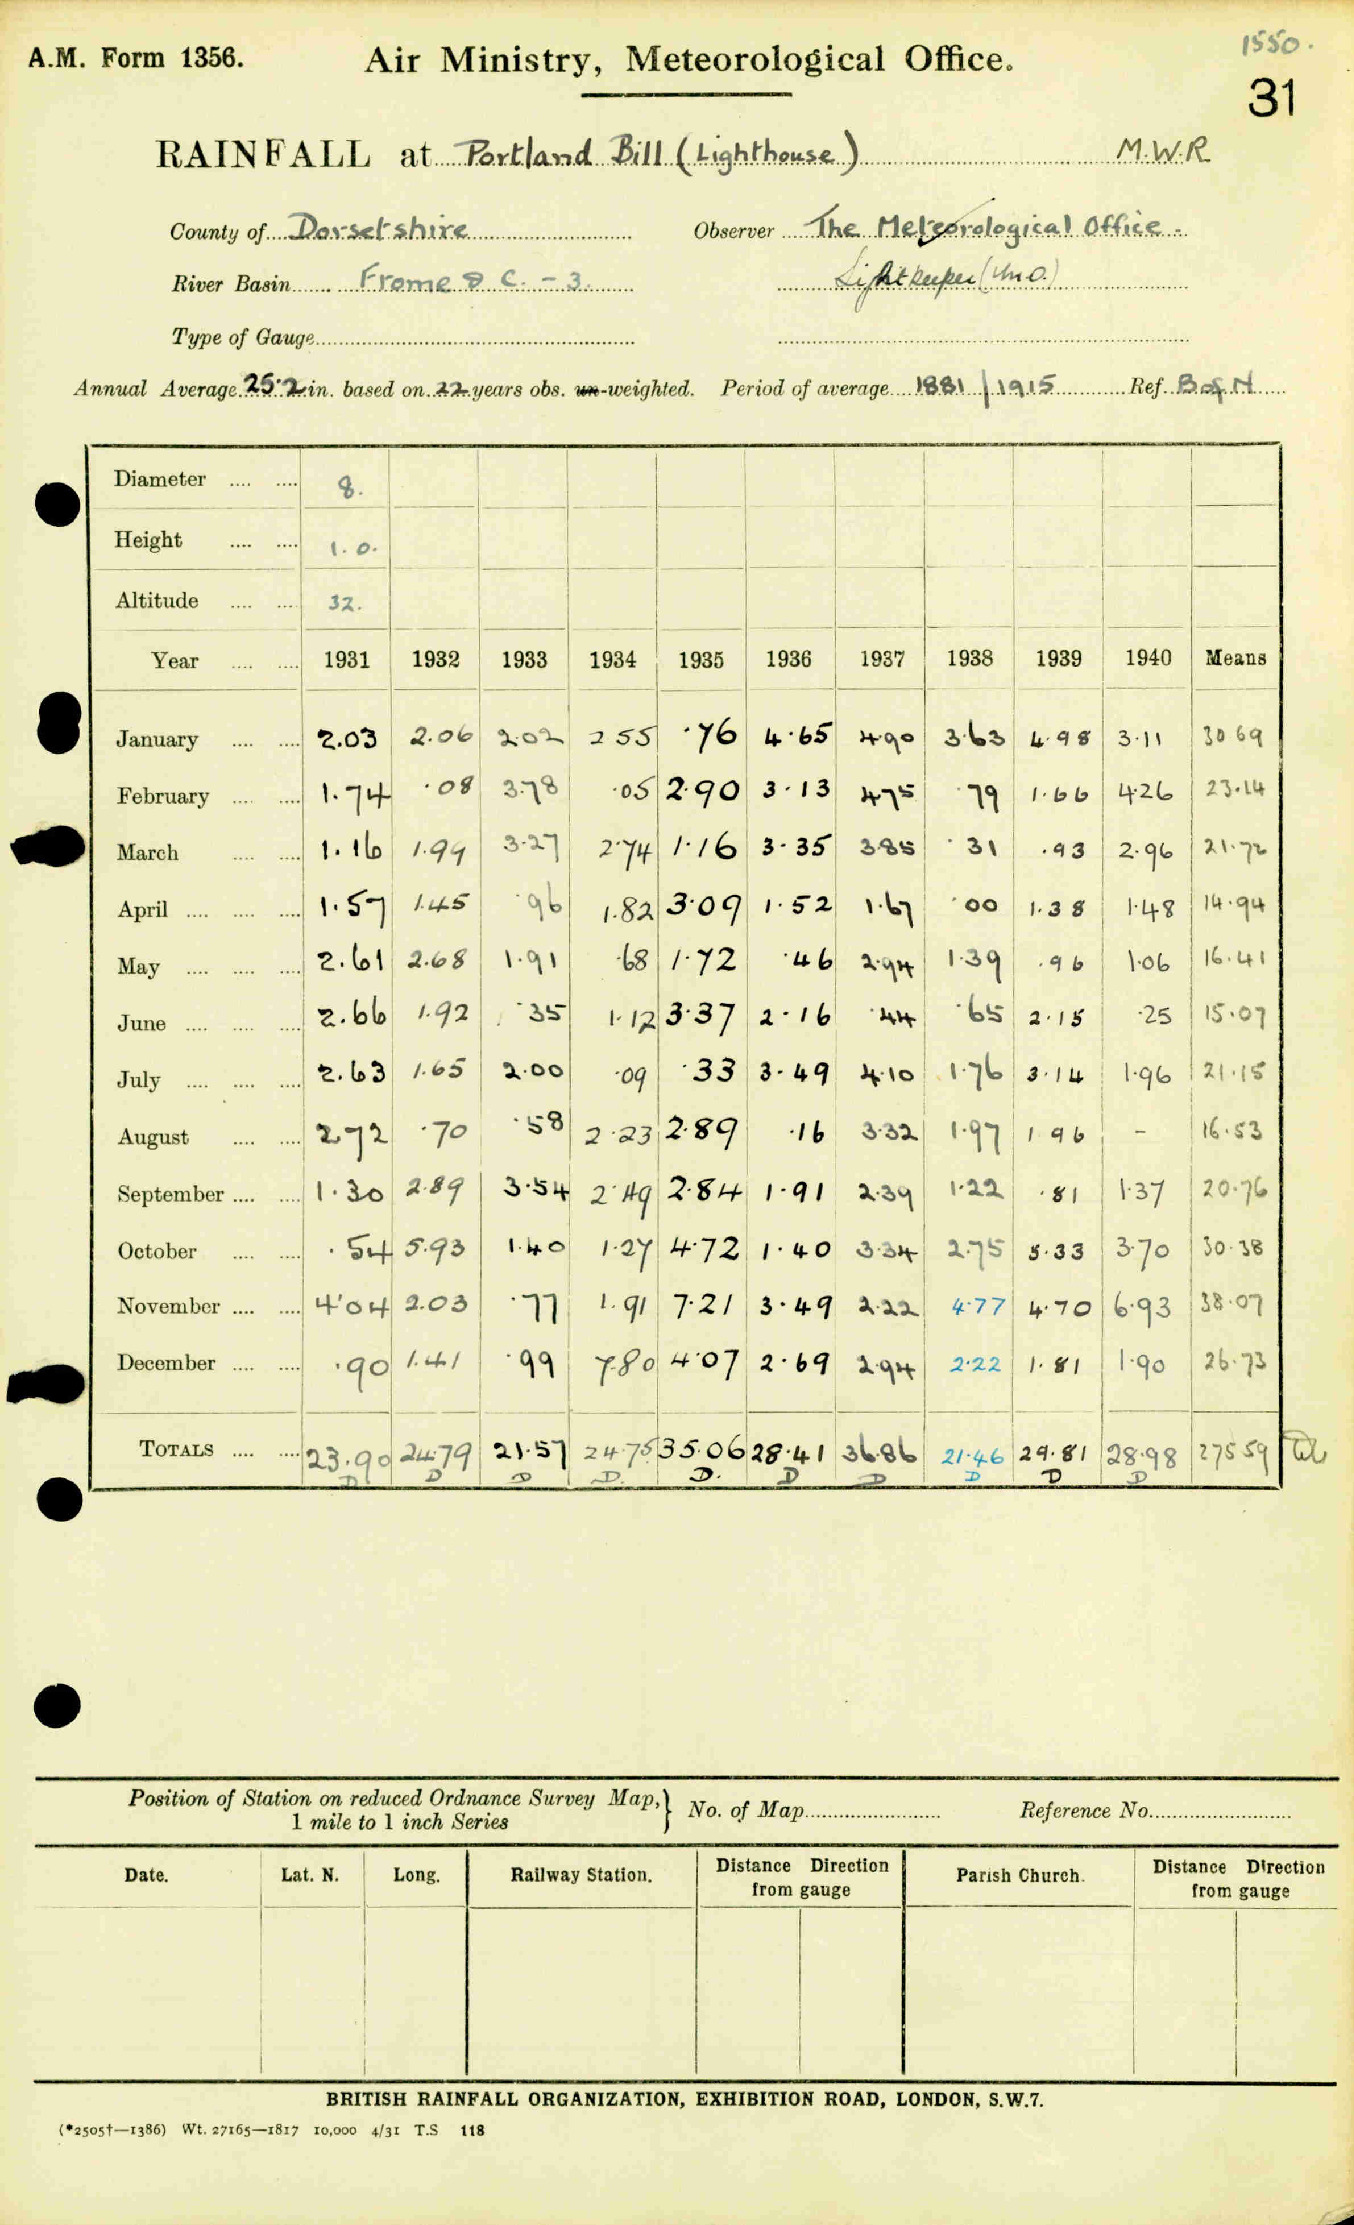 1550.
A.M. Form 1356. Air Ministry, Meteorological Office.
31
RAINFALL at Portland Bill (Lighthouse) M.W.R
County of Dorsetshire Observer The Meteorological Office.
River Basin Frome & C. - 3. Lightkeeper
Type of Gauge
Annual Average 25.2 in. based on 22 years obs. un-weighted. Period of average 1881/1915 Ref. B of N
Diameter 8.
Height 1.0.
Altitude 32.
Year 1931 1932 1933 1934 1935 1936 1937 1938 1939 1940 Means
January 2.03 2.06 2.02 2 55 .76 4.65 4.90 3.63 4.98 3.11 30 69
February 1.74 .08 3.78 .05 2.90 3.13 4.75 .79 1.66 4.26 23.14
March 1.16 1.99 3.27 2.74 1.16 3.35 3.85 .31 .93 2.96 21.72
April 1.57 1.45 .96 1.82 3.09 1.52 1.67 .00 1.38 1.48 14.94
May 2.61 2.68 1.91 .68 1.72 .46 2.94 1.39 .96 1.06 16.41
June 2.66 1.92 .35 1.12 3.37 2.16 .44 .65 2.15 .25 15.07
July 2.63 1.65 2.00 .09 .33 3.49 4.10 1.76 3.14 1.96 21.15
August 2.72 .70 .58 2.23 2.89 .16 3.32 1.97 1 96 - 16.53
September 1.30 2.89 3.54 2.49 2.84 1.91 2.39 1.22 .81 1.37 20.76
October .54 5.93 1.40 1.27 4.72 1.40 3.34 2.75 5.33 3.70 30.38
November 4.04 2.03 .77 1.91 7.21 3.49 2.22 4.77 4.70 6.93 38.07
December .90 1.41 .99 7.80 4.07 2.69 2.94 2.22 1.81 1.90 26.73
TOTALS 23.90 24.79 21.57 24.75 35.06 28.41 36.86 21.46 29.81 28.98 275 59
D D D D. D. D D D D D
Position of Station on reduced Ordnance Survey Map, } No. of Map Reference No.
1 mile to 1 inch Series
Date. Lat. N. Long. Railway Station. Distance Direction from gauge Parish Church. Distance Direction from gauge
BRITISH RAINFALL ORGANIZATION, EXHIBITION ROAD, LONDON, S.W.7.
(*2505†—1386) Wt. 27165—1817 10,000 4/31 T.S 118